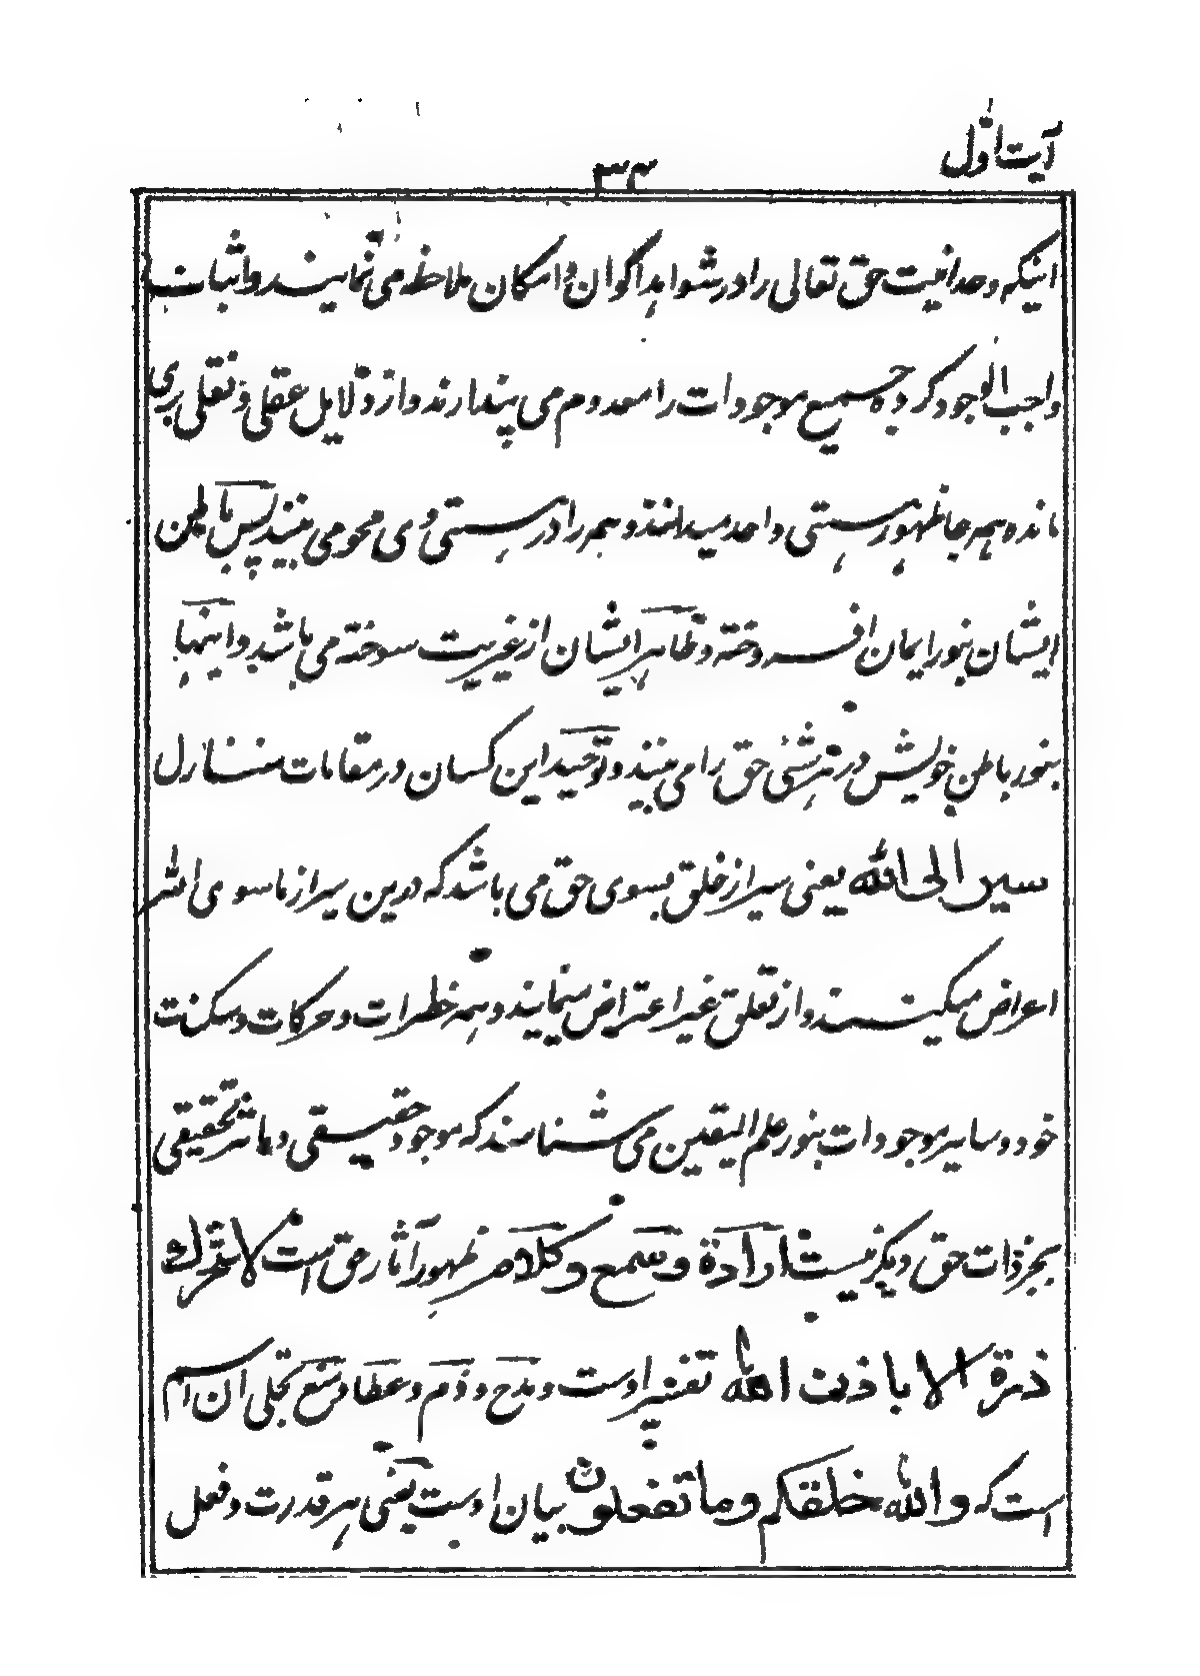 آیت اوّل
۳۴
اینکه وحدانیت حق تعالی را در شواهد اکوان و امکان ملاحظه می نمایند و اثبات
واجب الوجود کرده جمیع موجودات را معدوم می پندارند و از دلایل عقلی و نقلی بری
مانده همه جا ظهور هستی واحد میدانند و همه را در هستی وی محو می بینند پس باطن
ایشان بنور ایمان افروخته و ظاهر ایشان از غیریت سوخته می باشد و اینها
بنور باطن خویش در هر شئی حق را می بینند و توحید این کسان در مقامات منازل
سیر الی الله یعنی سیر از خلق بسوی حق می باشد که درین سیر از ماسوی الله
اعراض میکنند و از تعلق غیر اعتراض مینمایند و همه خطرات و حرکات و سکنات
خود و سایر موجودات بنور علم الیقین می شناسند که موجود حقیقی و ماثر تحقیقی
بجز ذات حق دیگر نیست ارادة و سمع و کلام ظهور آثار حق است لا تتحرك
ذرة الا باذن الله تفسیر اوست و مدح و ذم و عطا و منع تجلی آن اسم
است که والله خلقکم وما تفعلون بیان اوست یعنی هر قدرت و فعل